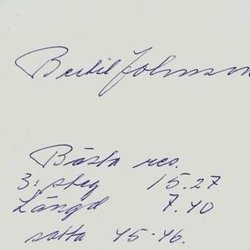 Bertil Johnson
Bästa res.
3: steg 15.27
Längd 7.40
satta 45-46.